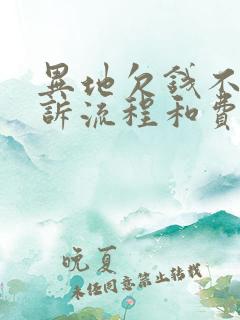 異地欠錢不
訴流程和費
晚夏
未經同意禁止转载